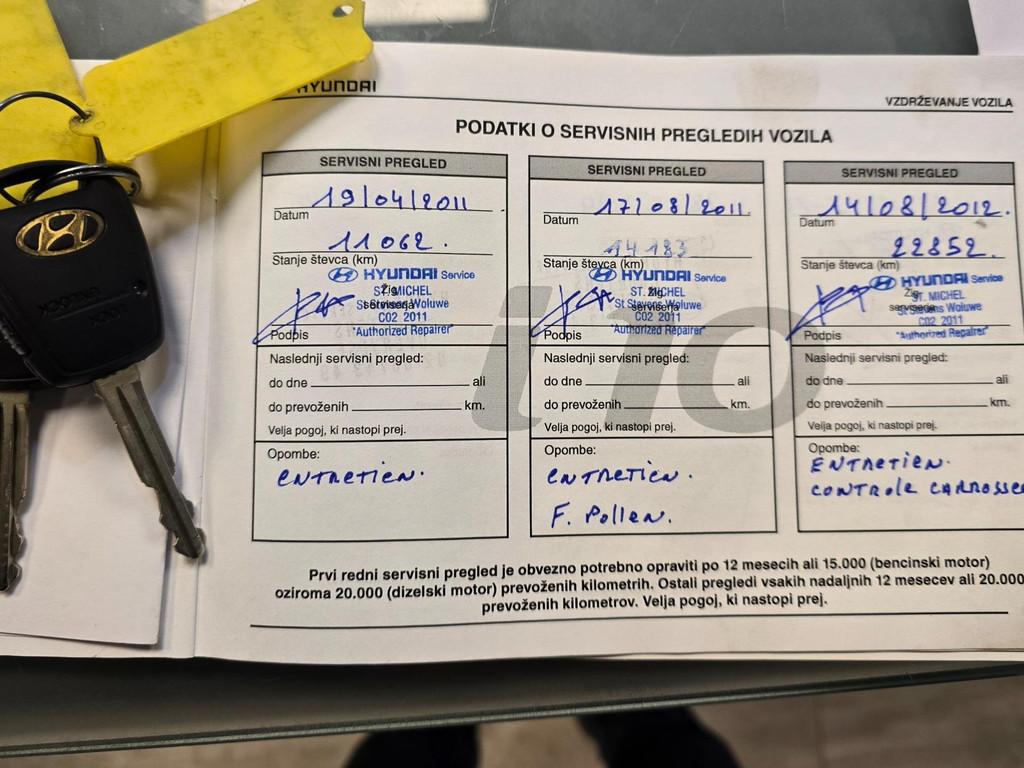 HYUNDAI
VZDRŽEVANJE VOZILA
PODATKI O SERVISNIH PREGLEDIH VOZILA
SERVISNI PREGLED
19/04/2011
Datum
11062.
Stanje števca (km)
HYUNDAI Service
Žig
ST. MICHEL
serviserja
St Stevens Woluwe
C02 2011
Podpis
"Authorized Repairer"
Naslednji servisni pregled:
do dne ali
do prevoženih km.
Velja pogoj, ki nastopi prej.
Opombe:
ENTRETIEN.
SERVISNI PREGLED
17/08/2011.
Datum
14183
Stanje števca (km)
HYUNDAI Service
Žig
ST. MICHEL
serviserja
St Stevens Woluwe
C02 2011
Podpis
"Authorized Repairer"
Naslednji servisni pregled:
do dne ali
do prevoženih km.
Velja pogoj, ki nastopi prej.
Opombe:
ENTRETIEN.
F. Pollen.
SERVISNI PREGLED
14/08/2012.
Datum
22852.
Stanje števca (km)
HYUNDAI Service
Žig
ST. MICHEL
serviserja
St Stevens Woluwe
C02 2011
Podpis
"Authorized Repairer"
Naslednji servisni pregled:
do dne ali
do prevoženih km.
Velja pogoj, ki nastopi prej.
Opombe:
ENTRETIEN.
CONTROLE CARROSSE
i10
Prvi redni servisni pregled je obvezno potrebno opraviti po 12 mesecih ali 15.000 (bencinski motor)
oziroma 20.000 (dizelski motor) prevoženih kilometrih. Ostali pregledi vsakih nadaljnih 12 mesecev ali 20.000
prevoženih kilometrov. Velja pogoj, ki nastopi prej.